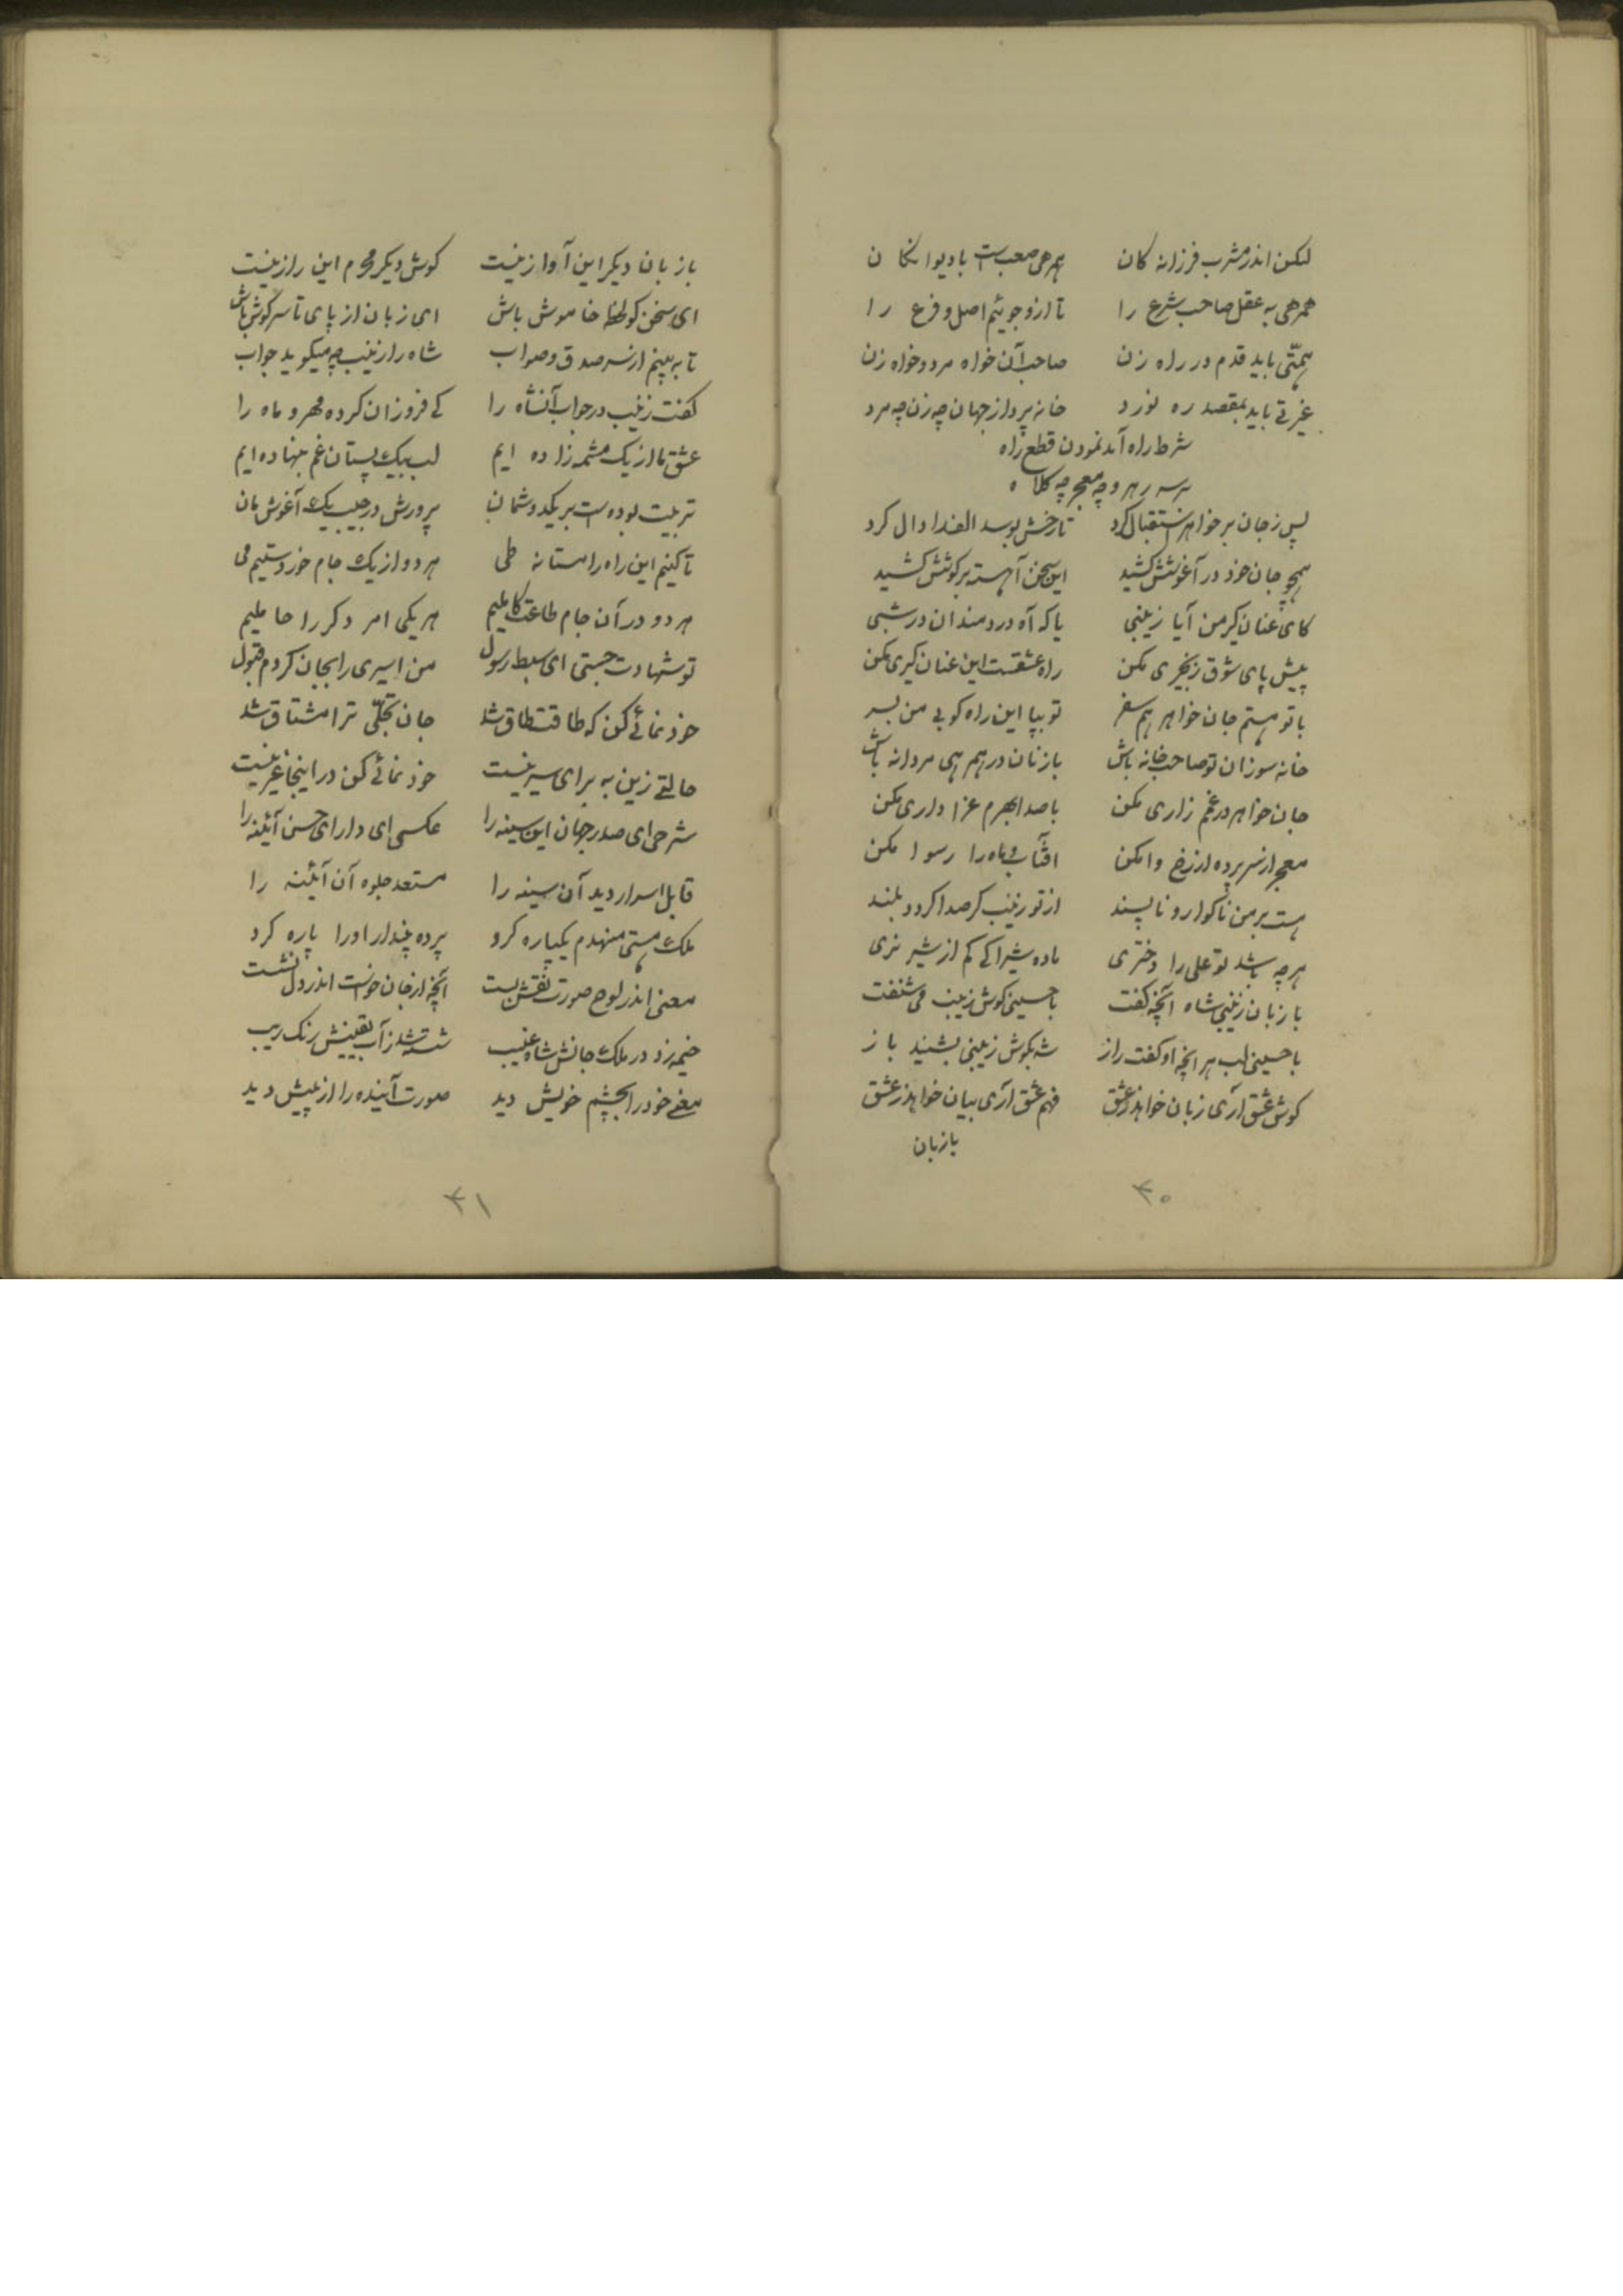 لیکن اندر مشرب فرزانه کان همرهی صعبست با دیوانکان
همرهی به عقل صاحب شرع را تا ازو جوئیم اصل و فرع را
همّتی باید قدم در راه زن صاحب آن خواه مرد و خواه زن
غیرتی باید بمقصد ره نورد خانه پرداز جهان چه زن چه مرد
شرط راه آمد نمودن قطع راه
بر سر رهرو چه معجر چه کلاه
پس ز جان بر خواهر استقبال کرد تا رخش بوسد الف را دال کرد
همچو جان خود در آغوشش کشید این سخن آهسته بر کوشش کشید
کای عنان کیر من آیا زینبی یا که آه دردمندان در شبی
پیش پای شوق زنجیری مکن راه عشقست این عنان کیری مکن
با تو هستم جان خواهر هم سفر تو بپا این راه کوبی من بسر
خانه سوزان تو صاحب خانه باش با زنان در همرهی مردانه باش
جان خواهر در غمم زاری مکن با صدا بهرم عزا داری مکن
معجر از سر پرده از رخ وا مکن افتاب و ماه را رسوا مکن
هست بر من ناکوار و ناپسند از تو زینب کر صدا کردد بلند
هر چه باشد تو علی را دختری ماده شیرا کی کم از شیر نری
با زبان زینبی شاه آنچه کفت با حسینی کوش زینب می شنفت
با حسینی لب هر انچه او کفت راز شه بکوش زینبی بشنید باز
کوش عشق آری زبان خواهد ز عشق فهم عشق آری بیان خواهد ز عشق
با زبان
۳۰
با زبان دیکر این آواز نیست کوش دیکر محرم این راز نیست
ای سخن کو لحظه خاموش باش ای زبان از پای تا سر کوش باش
تا به بینم از سر صدق و صواب شاه را زینب چه میکوید جواب
کفت زینب در جواب آنشاه را کی فروزان کرده مهر و ماه را
عشق ما از یک مشیمه زاده ایم لب بیک پستان غم بنهاده ایم
تربیت بوده ست بر یکدوشمان پرورش در جیب یک آغوشمان
تا کنیم این راه را مستانه طی هر دو از یک جام خوردستیم می
هر دو در آن جام طاعت کاملیم هر یکی امر دکر را حاملیم
تو شهادت جستی ای سبط رسول من اسیری را بجان کردم قبول
خود نمائی کن که طاقت طاق شد جان تجلّی ترا مشتاق شد
حالتی زین به برای سیر نیست خود نمائی کن در اینجا غیر نیست
شرحی ای صدر جهان این سینه را عکسی ای دارای حسن آئینه را
قابل اسرار دید آن سینه را مستعد جلوه آن آئینه را
ملک هستی منهدم یکباره کرد پرده پندار او را پاره کرد
معنی اندر لوح صورت نقش بست آنچه از جان خواست اندر دل نشست
خیمه زد در ملک جانش شاه غیب شسته شد ز آب یقینش زنک ریب
معنی خود را بچشم خویش دید صورت آینده را از پیش دید
۳۱